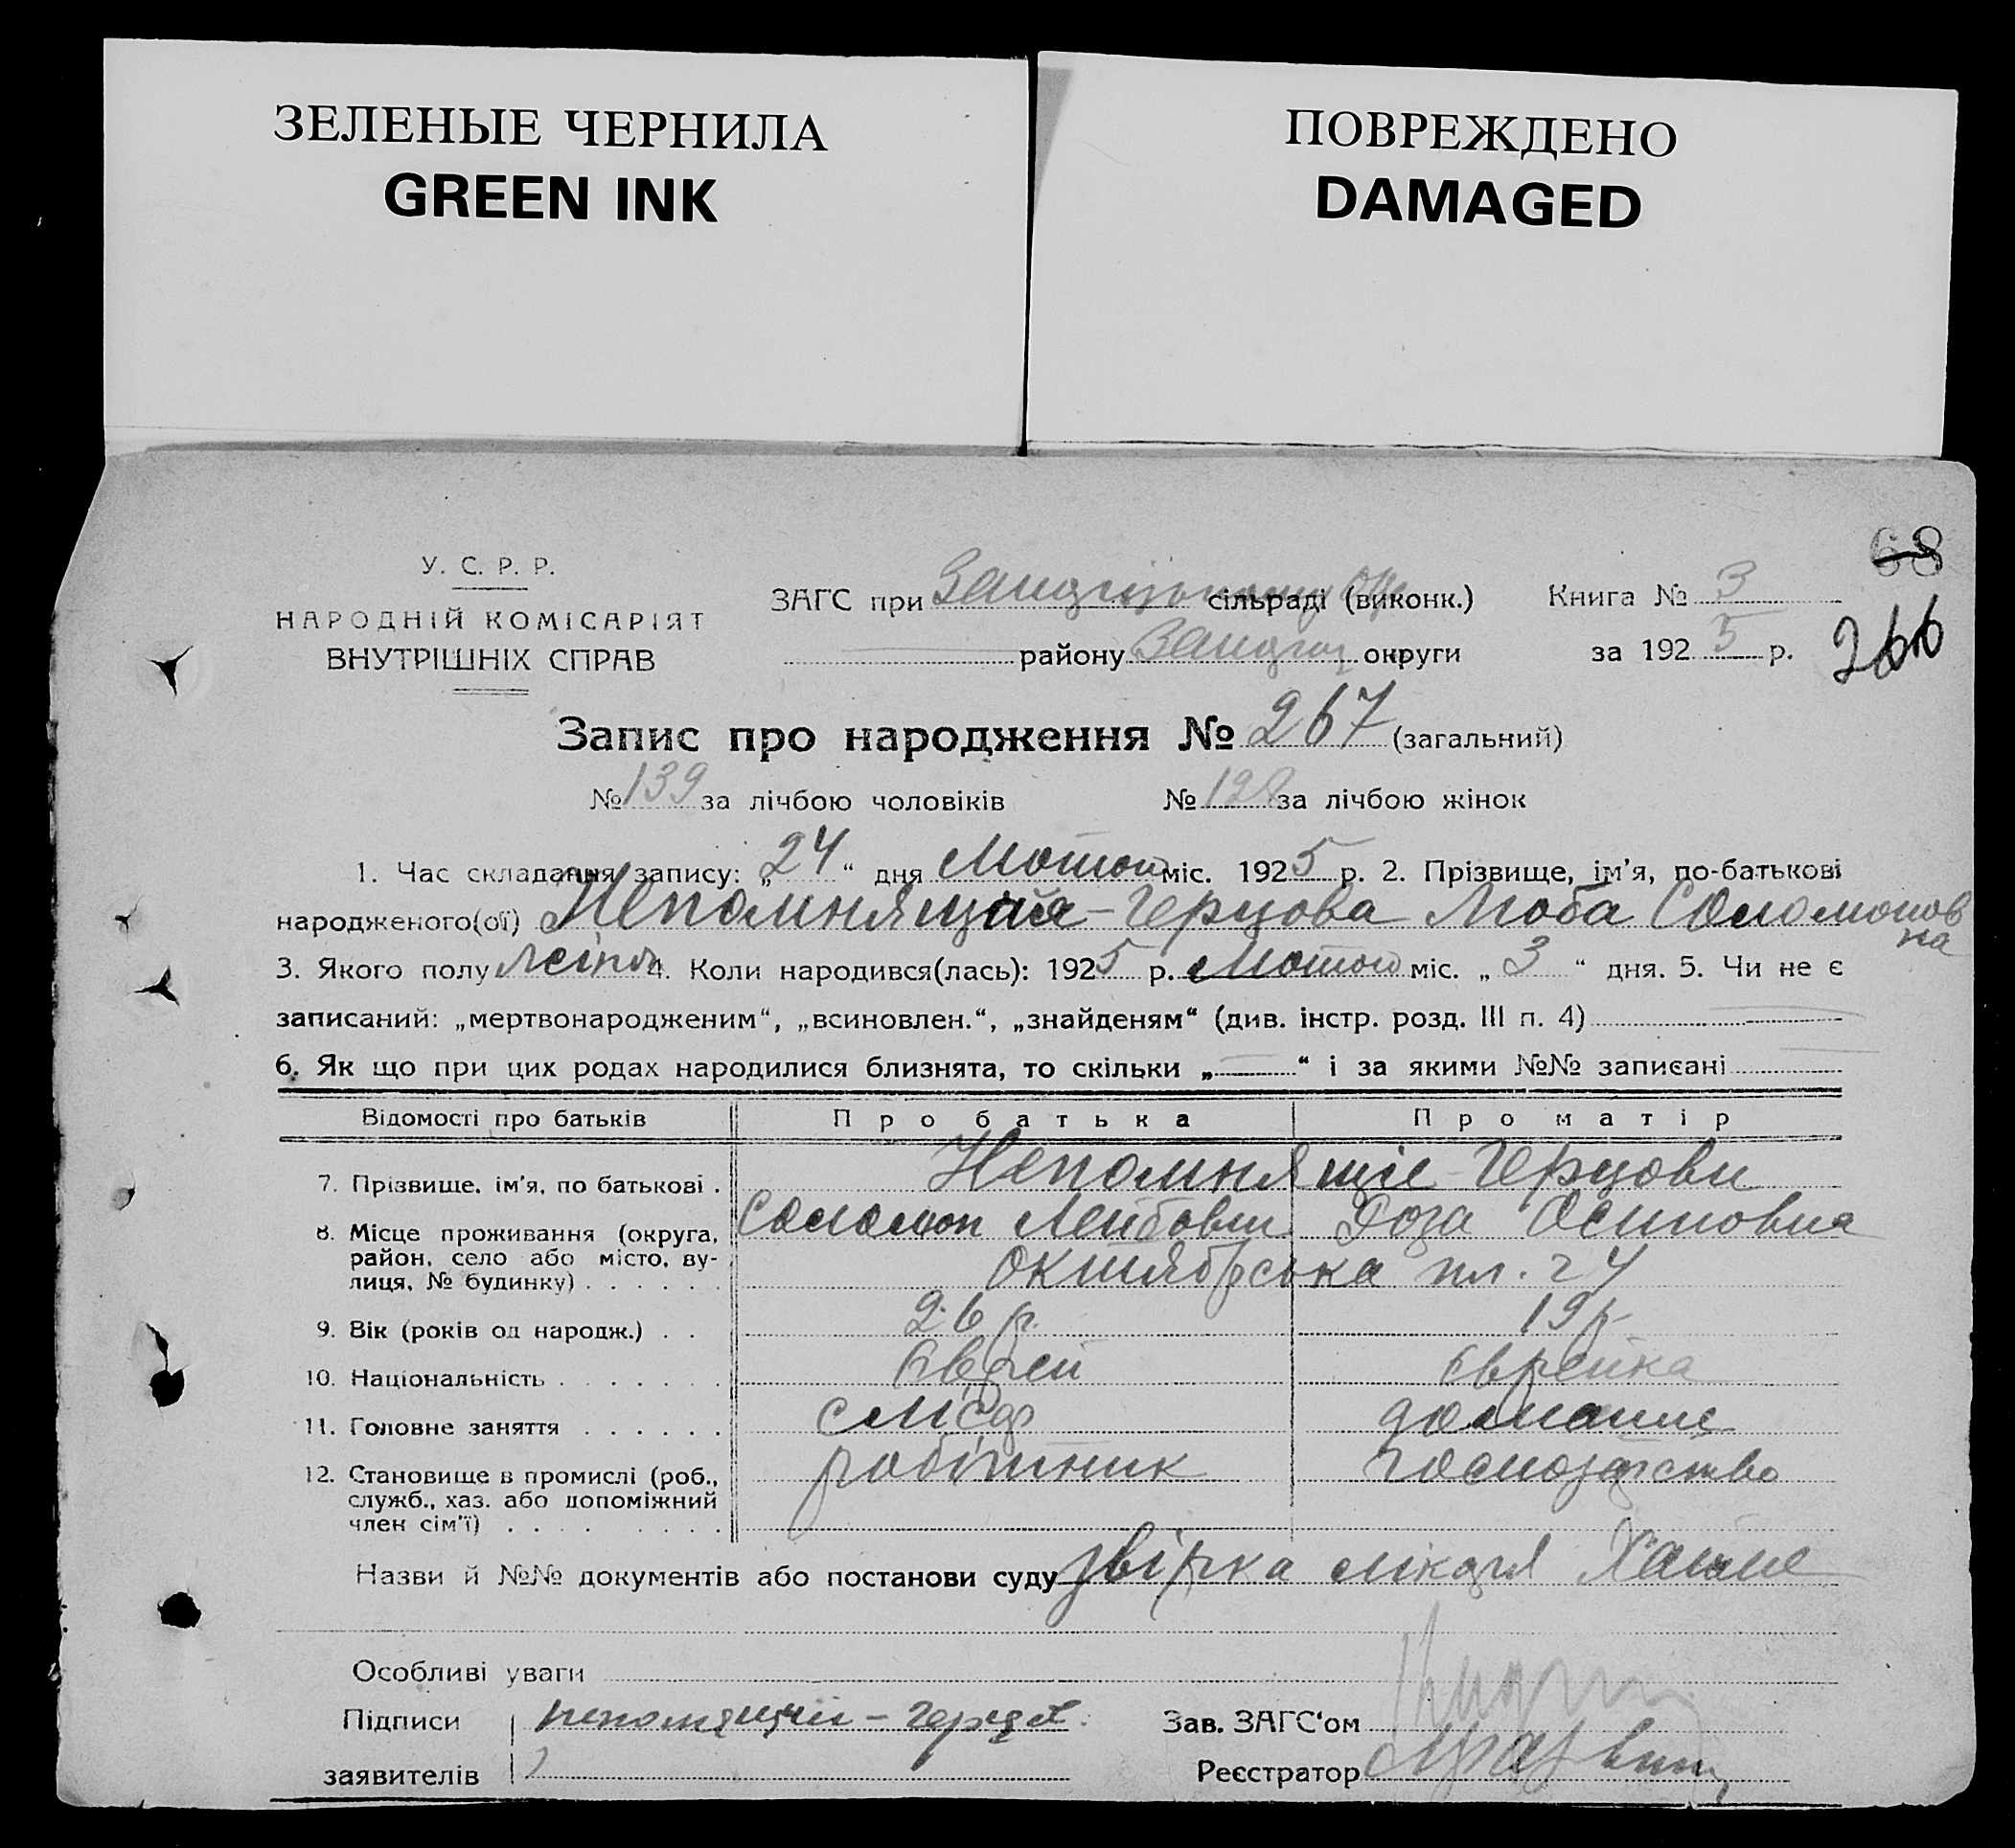 ЗЕЛЕНЫЕ ЧЕРНИЛА
GREEN INK
ПОВРЕЖДЕНО
DAMAGED
68
У. С. Р. Р.
НАРОДНІЙ КОМІСАРІЯТ
ВНУТРІШНІХ СПРАВ
ЗАГС при сільраді (виконк.)
району округи
Книга № 3
за 1925 р.
266
Запис про народження № 267 (загальний)
№ 139 за лічбою чоловіків № 128 за лічбою жінок
1. Час складання запису: „24“ дня Лютого міс. 1925 р. 2. Прізвище, ім'я, по-батькові
народженого(ої) Непомнящая-Герцова Люба Соломонов
на
3. Якого полу жіноч 4. Коли народився(лась): 1925 р. Лютого міс. „3“ дня. 5. Чи не є
записаний: „мертвонародженим“, „всиновлен.“, „знайденям“ (див. інстр. розд. III п. 4)
6. Як що при цих родах народилися близнята, то скільки „—“ і за якими №№ записані
Відомості про батьків Про батька Про матір
7. Прізвище, ім'я, по батькові . Непомнящіе Герцови
Соломон Лейбович Роза Осиповна
8. Місце проживання (округа,
район, село або місто, ву-
лиця, № будинку) . . . . . . Октябрська пл. 24
9. Вік (років од народж.) . . 26 р. 19 р
10. Національність . . . . . . . Єврей Єврейка
11. Головне заняття . . . . . . домашнє
12. Становище в промислі (роб., робітник господарство
служб., хаз. або допоміжний
член сім'ї) . . . . . . . .
Назви й №№ документів або постанови суду лікаря
Особливі уваги
Підписи Непомнящий – Герцов.
заявителів
Зав. ЗАГС'ом
Реєстратор